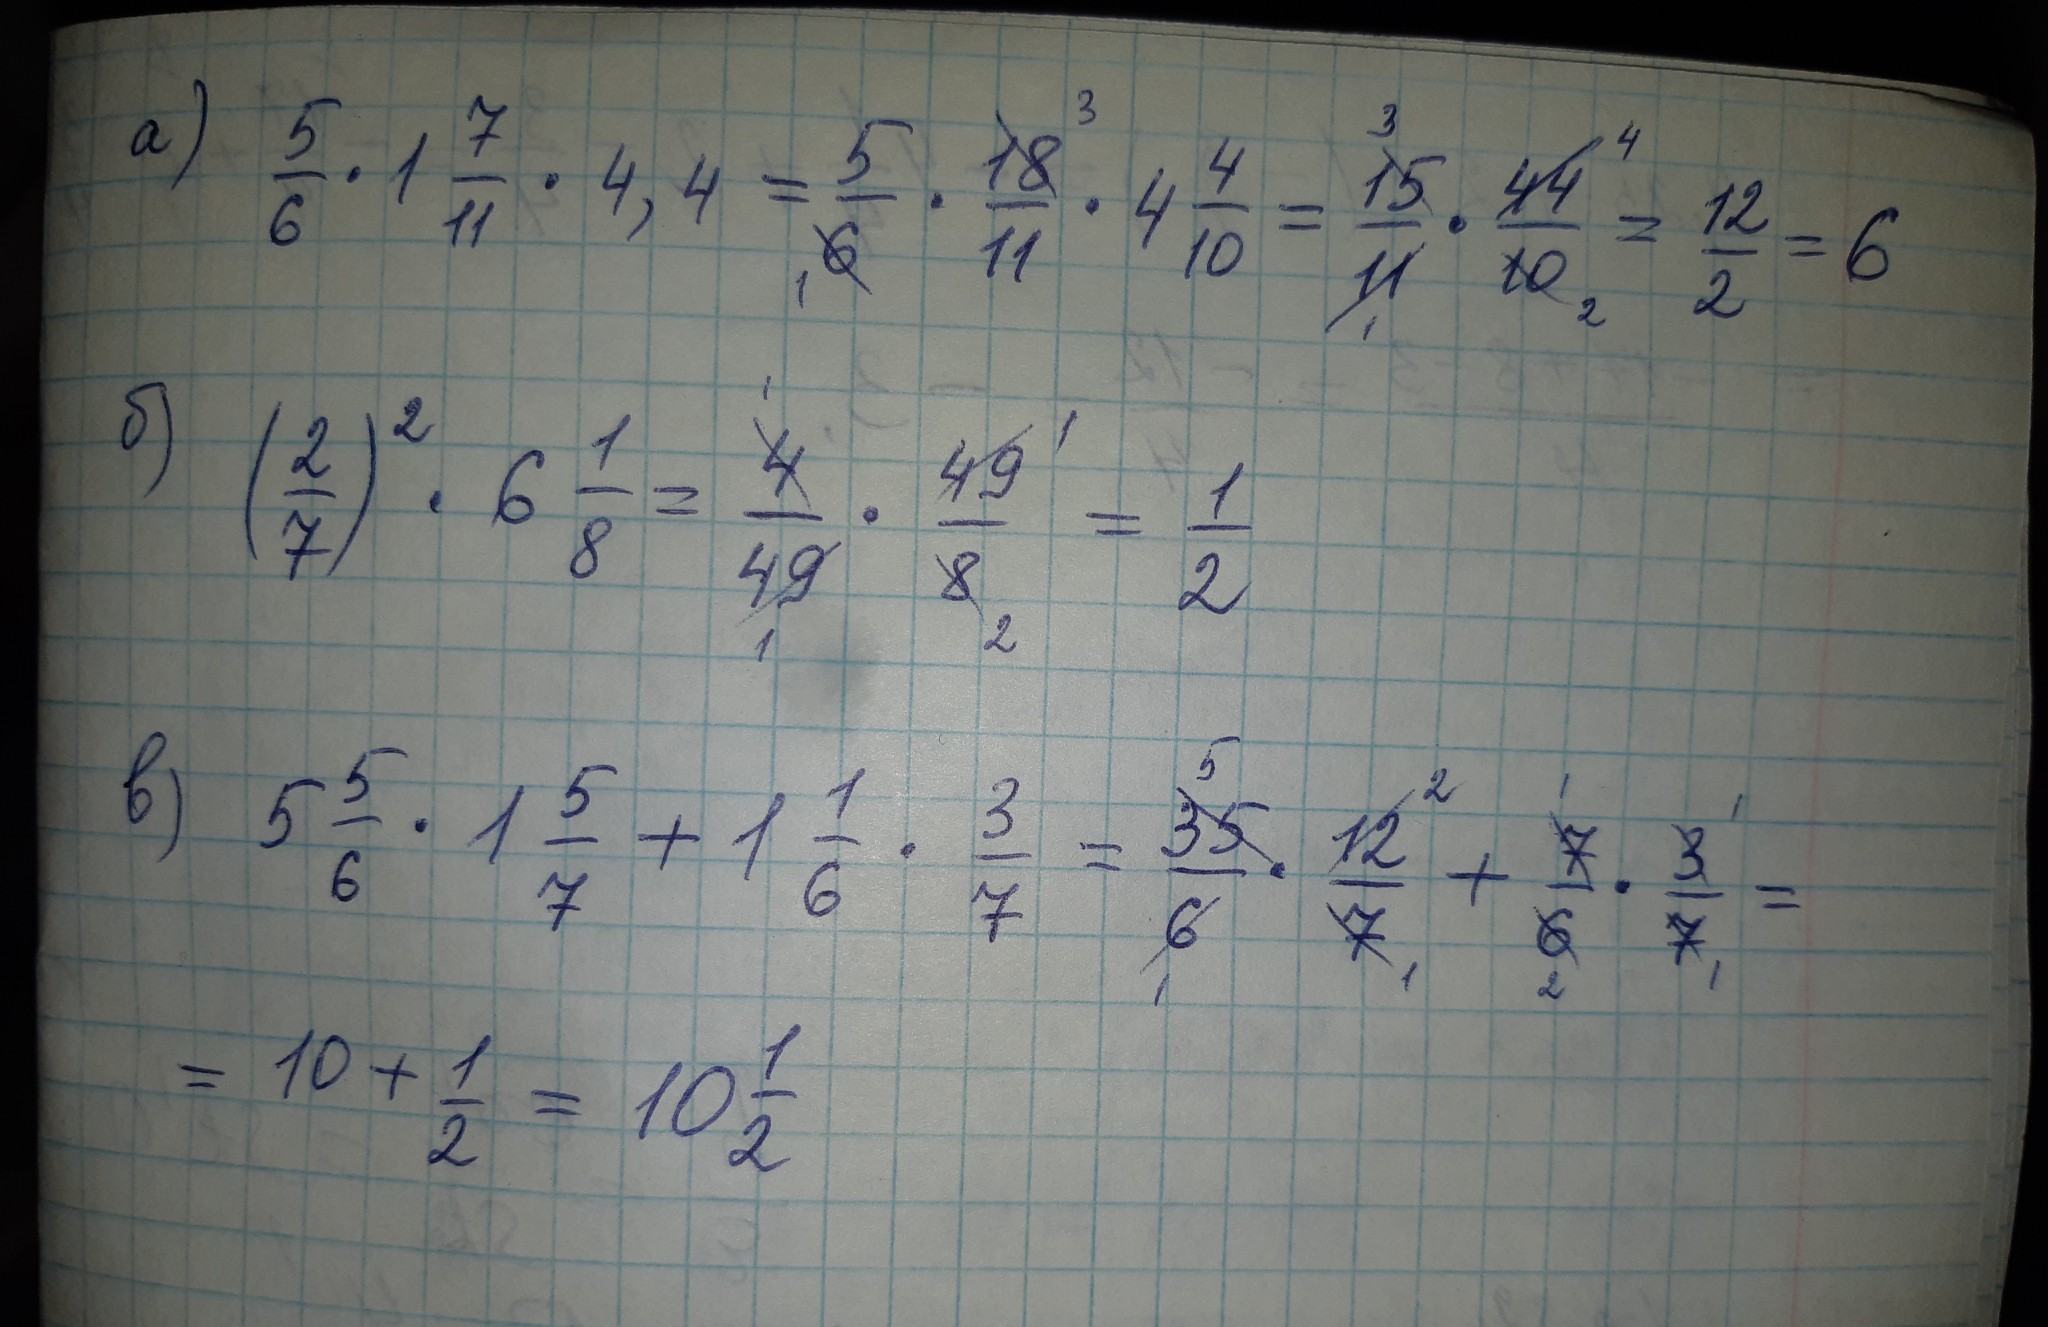 а) 5/6 · 1 7/11 · 4,4 = 5/6 · 18/11 · 4 4/10 = 15/11 · 44/10 = 12/2 = 6
б) (2/7)² · 6 1/8 = 4/49 · 49/8 = 1/2
в) 5 5/6 · 1 5/7 + 1 1/6 · 3/7 = 35/6 · 12/7 + 7/6 · 3/7 =
= 10 + 1/2 = 10 1/2